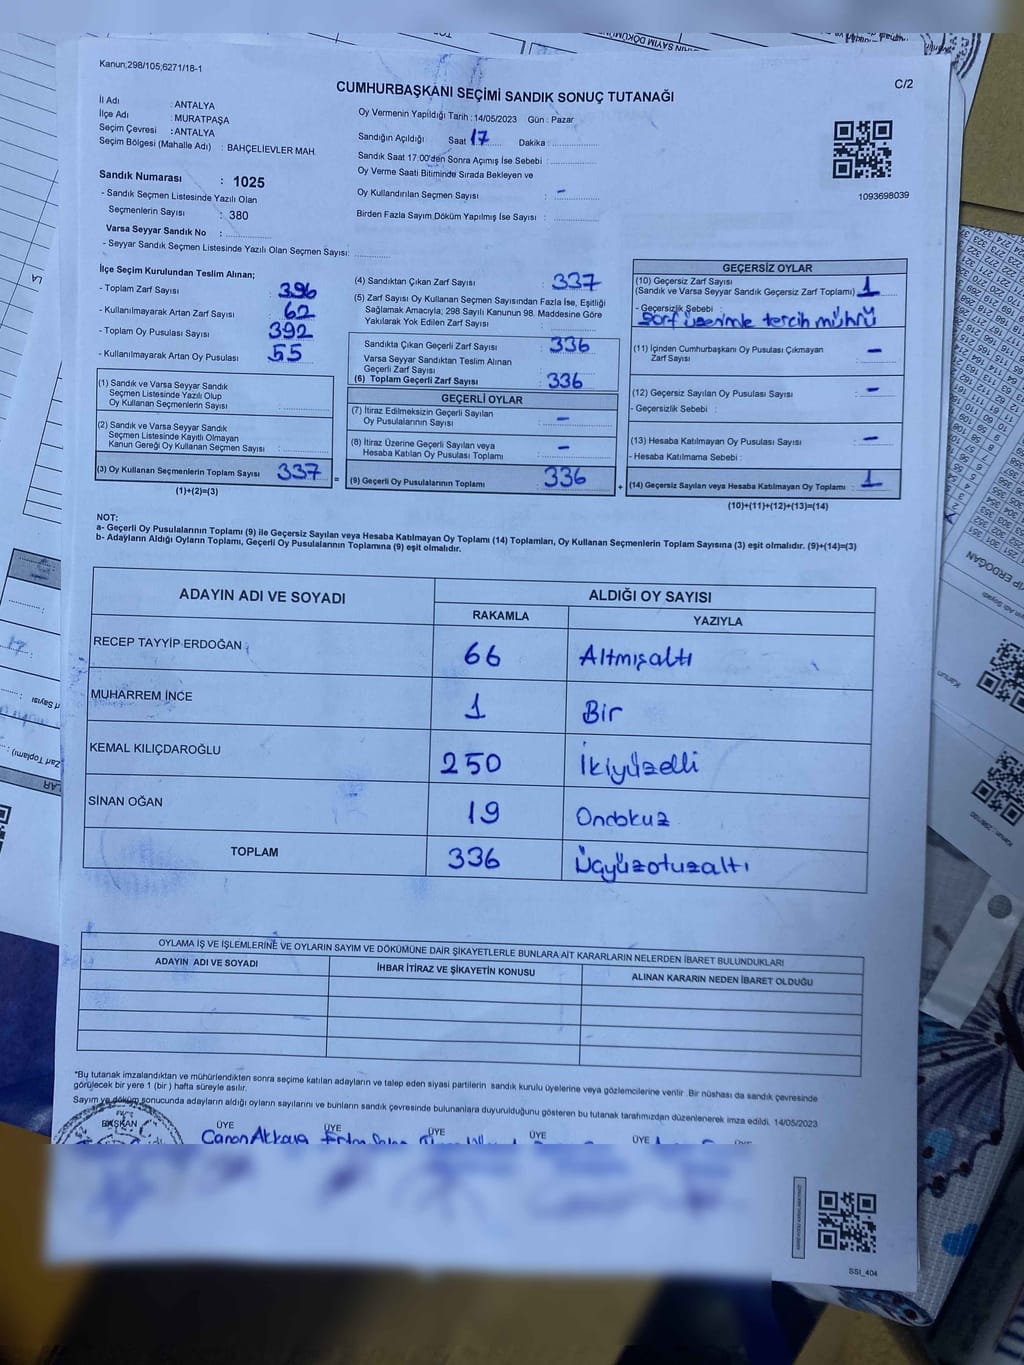 Kanun;298/105;6271/18-1
CUMHURBAŞKANI SEÇİMİ SANDIK SONUÇ TUTANAĞI
C/2
İl Adı : ANTALYA
İlçe Adı : MURATPAŞA
Seçim Çevresi : ANTALYA
Seçim Bölgesi (Mahalle Adı) : BAHÇELİEVLER MAH.
Sandık Numarası : 1025
- Sandık Seçmen Listesinde Yazılı Olan
Seçmenlerin Sayısı : 380
Varsa Seyyar Sandık No :
- Seyyar Sandık Seçmen Listesinde Yazılı Olan Seçmen Sayısı:
Oy Vermenin Yapıldığı Tarih : 14/05/2023 Gün : Pazar
Sandığın Açıldığı Saat 17 Dakika :
Sandık Saat 17:00'den Sonra Açımış İse Sebebi :
Oy Verme Saati Bitiminde Sırada Bekleyen ve
Oy Kullandırılan Seçmen Sayısı : -
Birden Fazla Sayım Döküm Yapılmış İse Sayısı :
1093698039
İlçe Seçim Kurulundan Teslim Alınan;
- Toplam Zarf Sayısı : 396
- Kullanılmayarak Artan Zarf Sayısı : 62
- Toplam Oy Pusulası Sayısı : 392
- Kullanılmayarak Artan Oy Pusulası : 55
(1) Sandık ve Varsa Seyyar Sandık
Seçmen Listesinde Yazılı Olup
Oy Kullanan Seçmenlerin Sayısı :
(2) Sandık ve Varsa Seyyar Sandık
Seçmen Listesinde Kayıtlı Olmayan
Kanun Gereği Oy Kullanan Seçmen Sayısı :
(3) Oy Kullanan Seçmenlerin Toplam Sayısı 337 =
(1)+(2)=(3)
(4) Sandıktan Çıkan Zarf Sayısı : 337
(5) Zarf Sayısı Oy Kullanan Seçmen Sayısından Fazla İse, Eşitliği
Sağlamak Amacıyla; 298 Sayılı Kanunun 98. Maddesine Göre
Yakılarak Yok Edilen Zarf Sayısı :
Sandıkta Çıkan Geçerli Zarf Sayısı : 336
Varsa Seyyar Sandıktan Teslim Alınan
Geçerli Zarf Sayısı :
(6) Toplam Geçerli Zarf Sayısı : 336
GEÇERLİ OYLAR
(7) İtiraz Edilmeksizin Geçerli Sayılan
Oy Pusulalarının Sayısı : -
(8) İtiraz Üzerine Geçerli Sayılan veya
Hesaba Katılan Oy Pusulası Toplamı : -
(9) Geçerli Oy Pusulalarının Toplamı : 336 +
GEÇERSİZ OYLAR
(10) Geçersiz Zarf Sayısı
(Sandık ve Varsa Seyyar Sandık Geçersiz Zarf Toplamı) 1
- Geçersizlik Sebebi
Zarf üzerimle tercih mührü
(11) İçinden Cumhurbaşkanı Oy Pusulası Çıkmayan
Zarf Sayısı : -
(12) Geçersiz Sayılan Oy Pusulası Sayısı : -
- Geçersizlik Sebebi :
(13) Hesaba Katılmayan Oy Pusulası Sayısı : -
- Hesaba Katılmama Sebebi :
(14) Geçersiz Sayılan veya Hesaba Katılmayan Oy Toplamı : 1
(10)+(11)+(12)+(13)=(14)
NOT:
a- Geçerli Oy Pusulalarının Toplamı (9) ile Geçersiz Sayılan veya Hesaba Katılmayan Oy Toplamı (14) Toplamları, Oy Kullanan Seçmenlerin Toplam Sayısına (3) eşit olmalıdır. (9)+(14)=(3)
b- Adayların Aldığı Oyların Toplamı, Geçerli Oy Pusulalarının Toplamına (9) eşit olmalıdır.
ADAYIN ADI VE SOYADI ALDIĞI OY SAYISI
RAKAMLA YAZIYLA
RECEP TAYYİP ERDOĞAN 66 Altmışaltı
MUHARREM İNCE 1 Bir
KEMAL KILIÇDAROĞLU 250 İkiyüzelli
SİNAN OĞAN 19 Ondokuz
TOPLAM 336 Üçyüzotuzaltı
OYLAMA İŞ VE İŞLEMLERİNE VE OYLARIN SAYIM VE DÖKÜMÜNE DAİR ŞİKAYETLERLE BUNLARA AİT KARARLARIN NELERDEN İBARET BULUNDUKLARI
ADAYIN ADI VE SOYADI İHBAR İTİRAZ VE ŞİKAYETİN KONUSU ALINAN KARARIN NEDEN İBARET OLDUĞU
*Bu tutanak imzalandıktan ve mühürlendikten sonra seçime katılan adayların ve talep eden siyasi partilerin sandık kurulu üyelerine veya gözlemcilerine verilir. Bir nüshası da sandık çevresinde
görülecek bir yere 1 (bir) hafta süreyle asılır.
Sayım ve döküm sonucunda adayların aldığı oyların sayılarını ve bunların sandık çevresinde bulunanlara duyurulduğunu gösteren bu tutanak tarafımızdan düzenlenerek imza edildi. 14/05/2023
BAŞKAN ÜYE ÜYE ÜYE ÜYE ÜYE
SSI_404